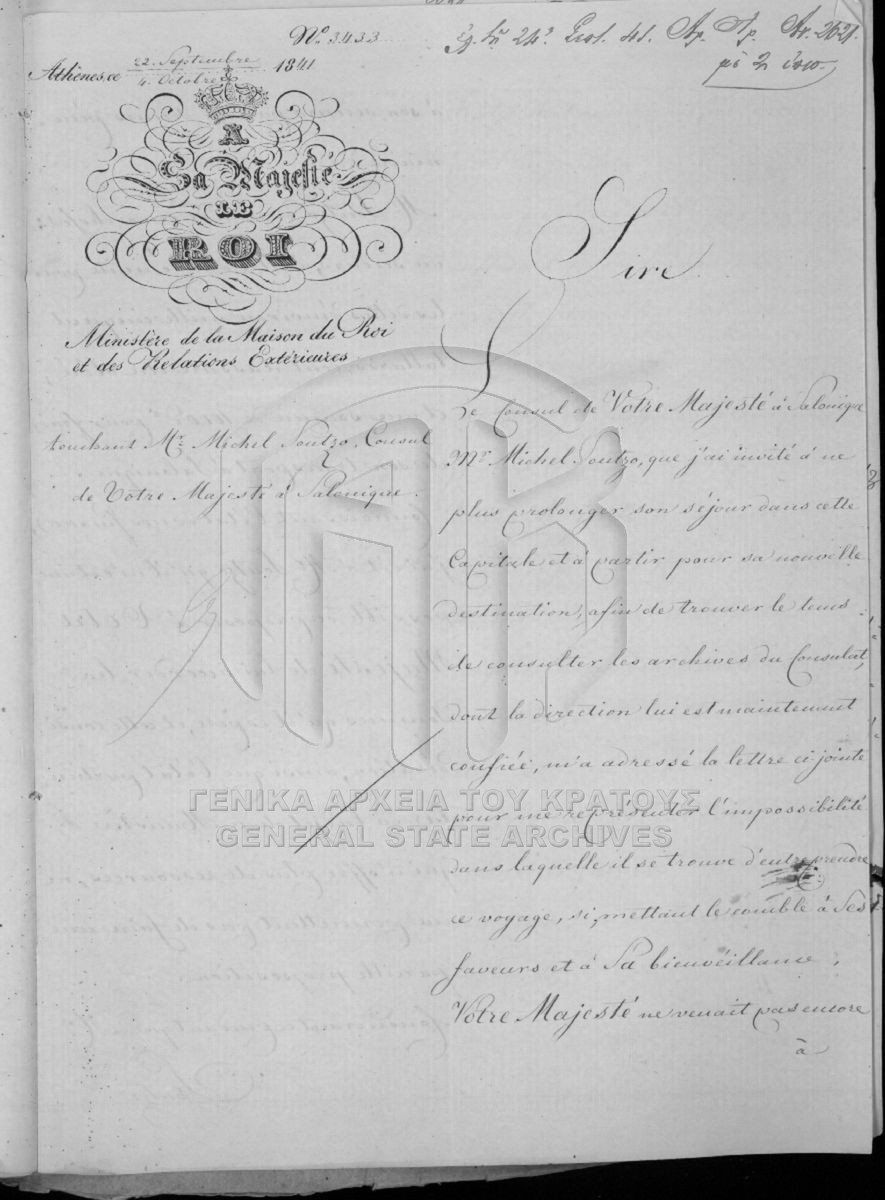 Nº 3433.
Athènes, ce 22. Septembre / 4. Octobre 1841
Ἀρ. 2621.
μὲ 2
A
Sa Majesté
LE
ROI
Ministère de la Maison du Roi
et des Relations Extérieures
touchant Mr. Michel Soutzo, Consul
de Votre Majesté à Salonique.
Sire
Le Consul de Votre Majesté à Salonique
Mr Michel Soutzo, que j'ai invité à ne
plus prolonger son séjour dans cette
Capitale et à partir pour sa nouvelle
destination, afin de trouver le tems
de consulter les archives du Consulat,
dont la direction lui est maintenant
confiée, m'a adressé la lettre ci jointe
pour me représenter l'impossibilité
dans laquelle il se trouve d'entreprendre
ce voyage, si, mettant le comble à Ses
faveurs et à Sa bienvéillance,
Votre Majesté ne venait pas encore
à
ΓΕΝΙΚΑ ΑΡΧΕΙΑ ΤΟΥ ΚΡΑΤΟΥΣ
GENERAL STATE ARCHIVES